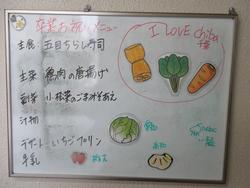 卒業お祝いメニュー
主食 五目ちらし寿司
主菜 鶏肉の唐揚げ
副菜 小松菜のごまみそあえ
汁物
デザート いちごプリン
牛乳
I LOVE Chiba
千葉